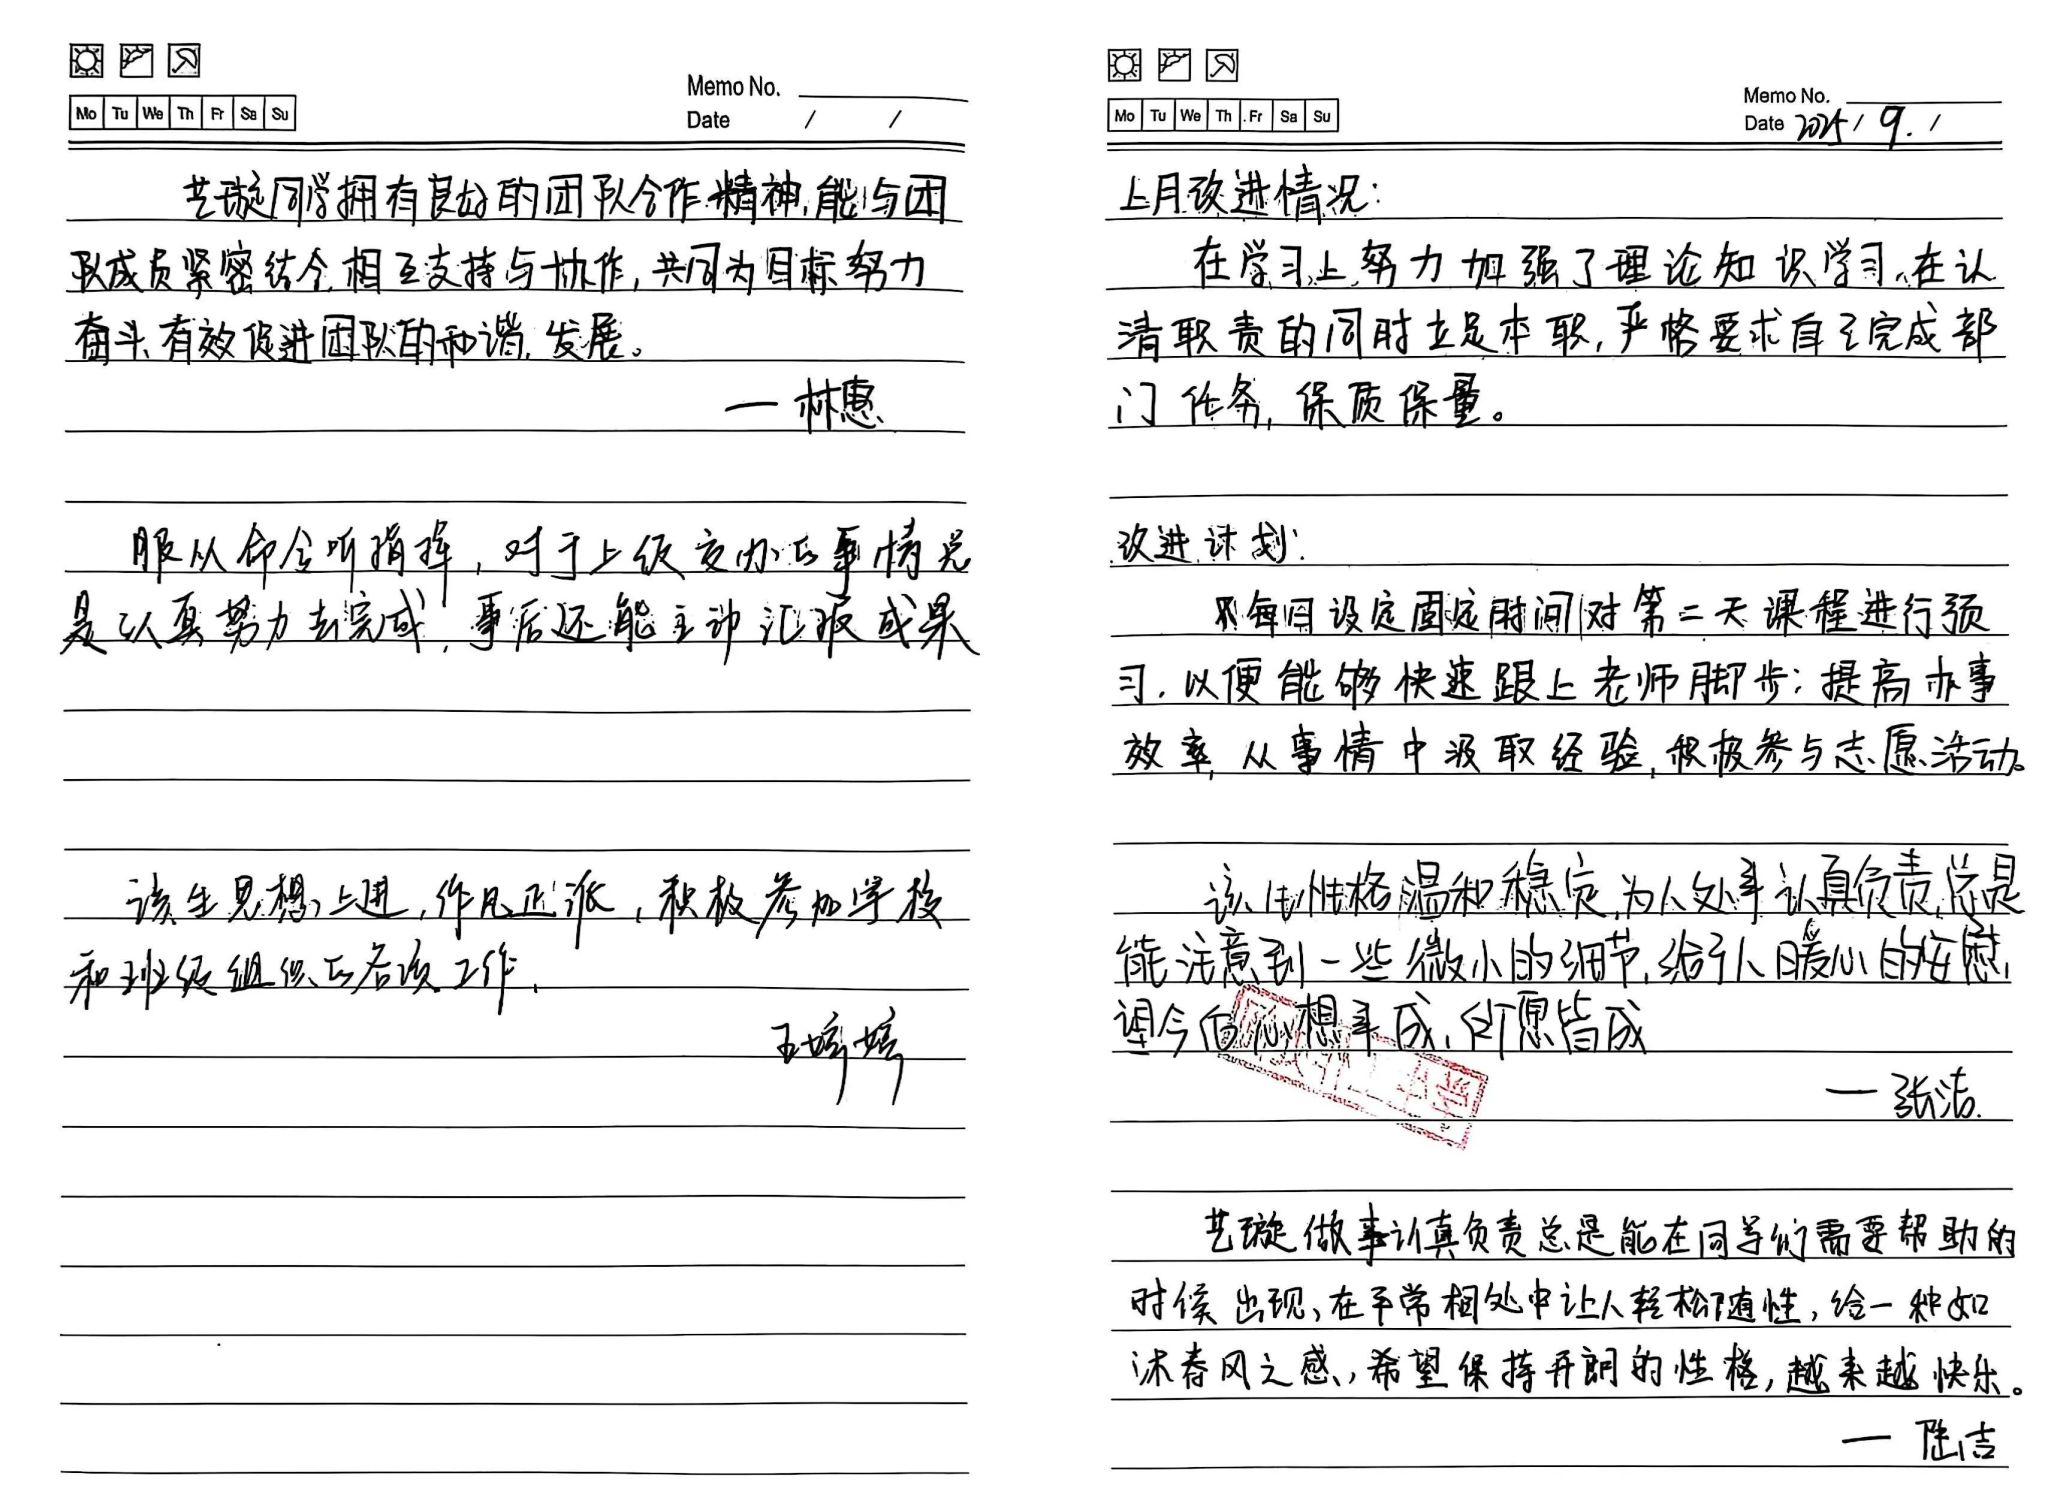 Memo No.
Mo Tu We Th Fr Sa Su
Date / /
艺璇同学拥有良好的团队合作精神,能与团
队成员紧密结合,相互支持与协作,共同为目标努力
奋斗、有效促进团队的和谐、发展。
— 林惠
服从命令听指挥,对于上级交办的事情总
是认真努力去完成,事后还能主动汇报成果
该生思想上进,作风正派,积极参加学校
和班级组织的各项工作.
王婷婷
Memo No.
Mo Tu We Th Fr Sa Su
Date 2025 / 9. /
上月改进情况:
在学习上努力加强了理论知识学习,在认
清职责的同时立足本职,严格要求自己完成部
门任务,保质保量。
改进计划:
每日设定固定时间对第二天课程进行预
习,以便能够快速跟上老师脚步;提高办事
效率,从事情中汲取经验,积极参与志愿活动。
该生性格温和稳定,为人处事认真负责,总是
能注意到一些微小的细节,给予人暖心的安慰,
望今后心想事成,所愿皆成
— 张洁
艺璇做事认真负责总是能在同学们需要帮助的
时候出现、在平常相处中让人轻松随性,给一种如
沐春风之感,希望保持开朗的性格,越来越快乐。
— 陆吉